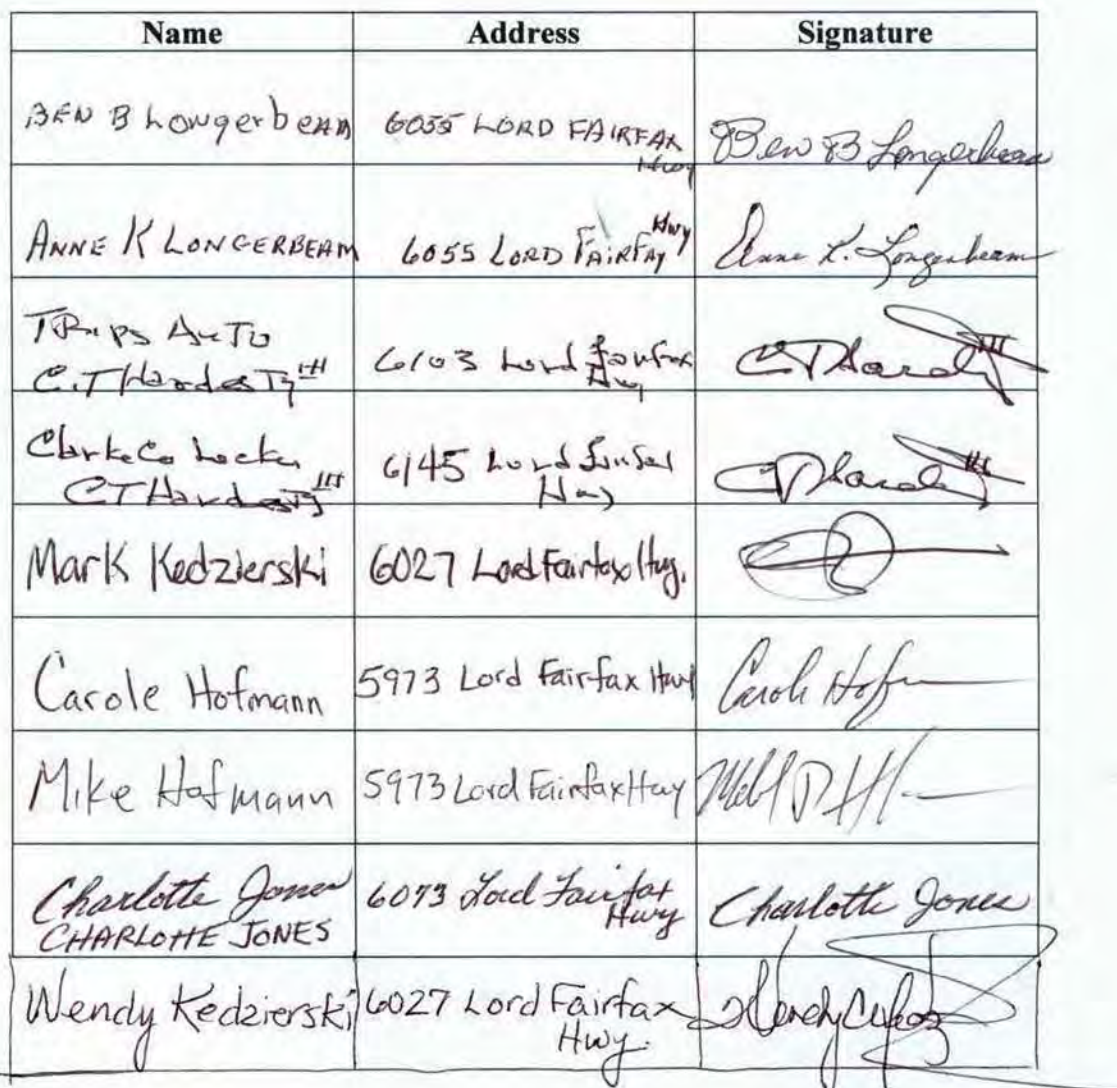 Name Address Signature
BEN B Longerbeam 6055 LORD FAIRFAX Hwy Ben B Longerbeam
ANNE K LONGERBEAM 6055 LORD FAIRFAX Hwy Anne K. Longerbeam
TRIPS AUTO
C.T Hardesty III 6103 Lord Fairfax Hwy CT Hardesty III
Clarke Co Locker
CT Hardesty III 6145 Lord Fairfax Hwy CT Hardesty III
Mark Kedzierski 6027 Lord Fairfax Hwy.
Carole Hofmann 5973 Lord Fairfax Hwy Carole Hofmann
Mike Hofmann 5973 Lord Fairfax Hwy
Charlotte Jones 6073 Lord Fairfax Hwy Charlotte Jones
CHARLOTTE JONES
Wendy Kedzierski 6027 Lord Fairfax Hwy. Wendy